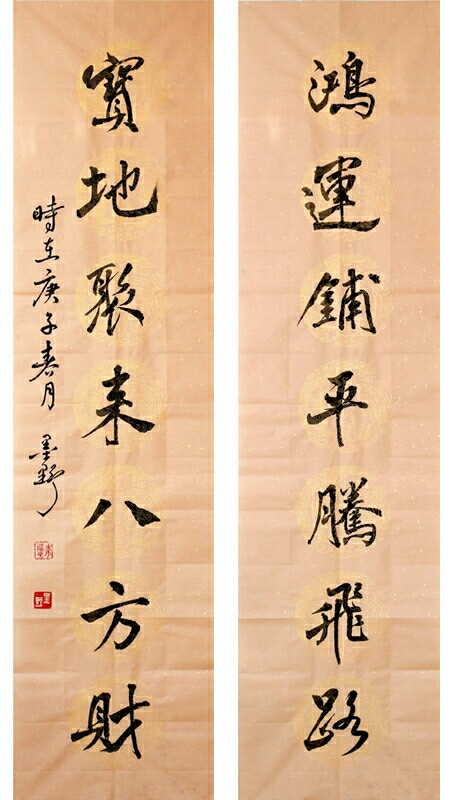 鴻運鋪平騰飛路
寶地聚來八方財
時在庚子春月 墨野